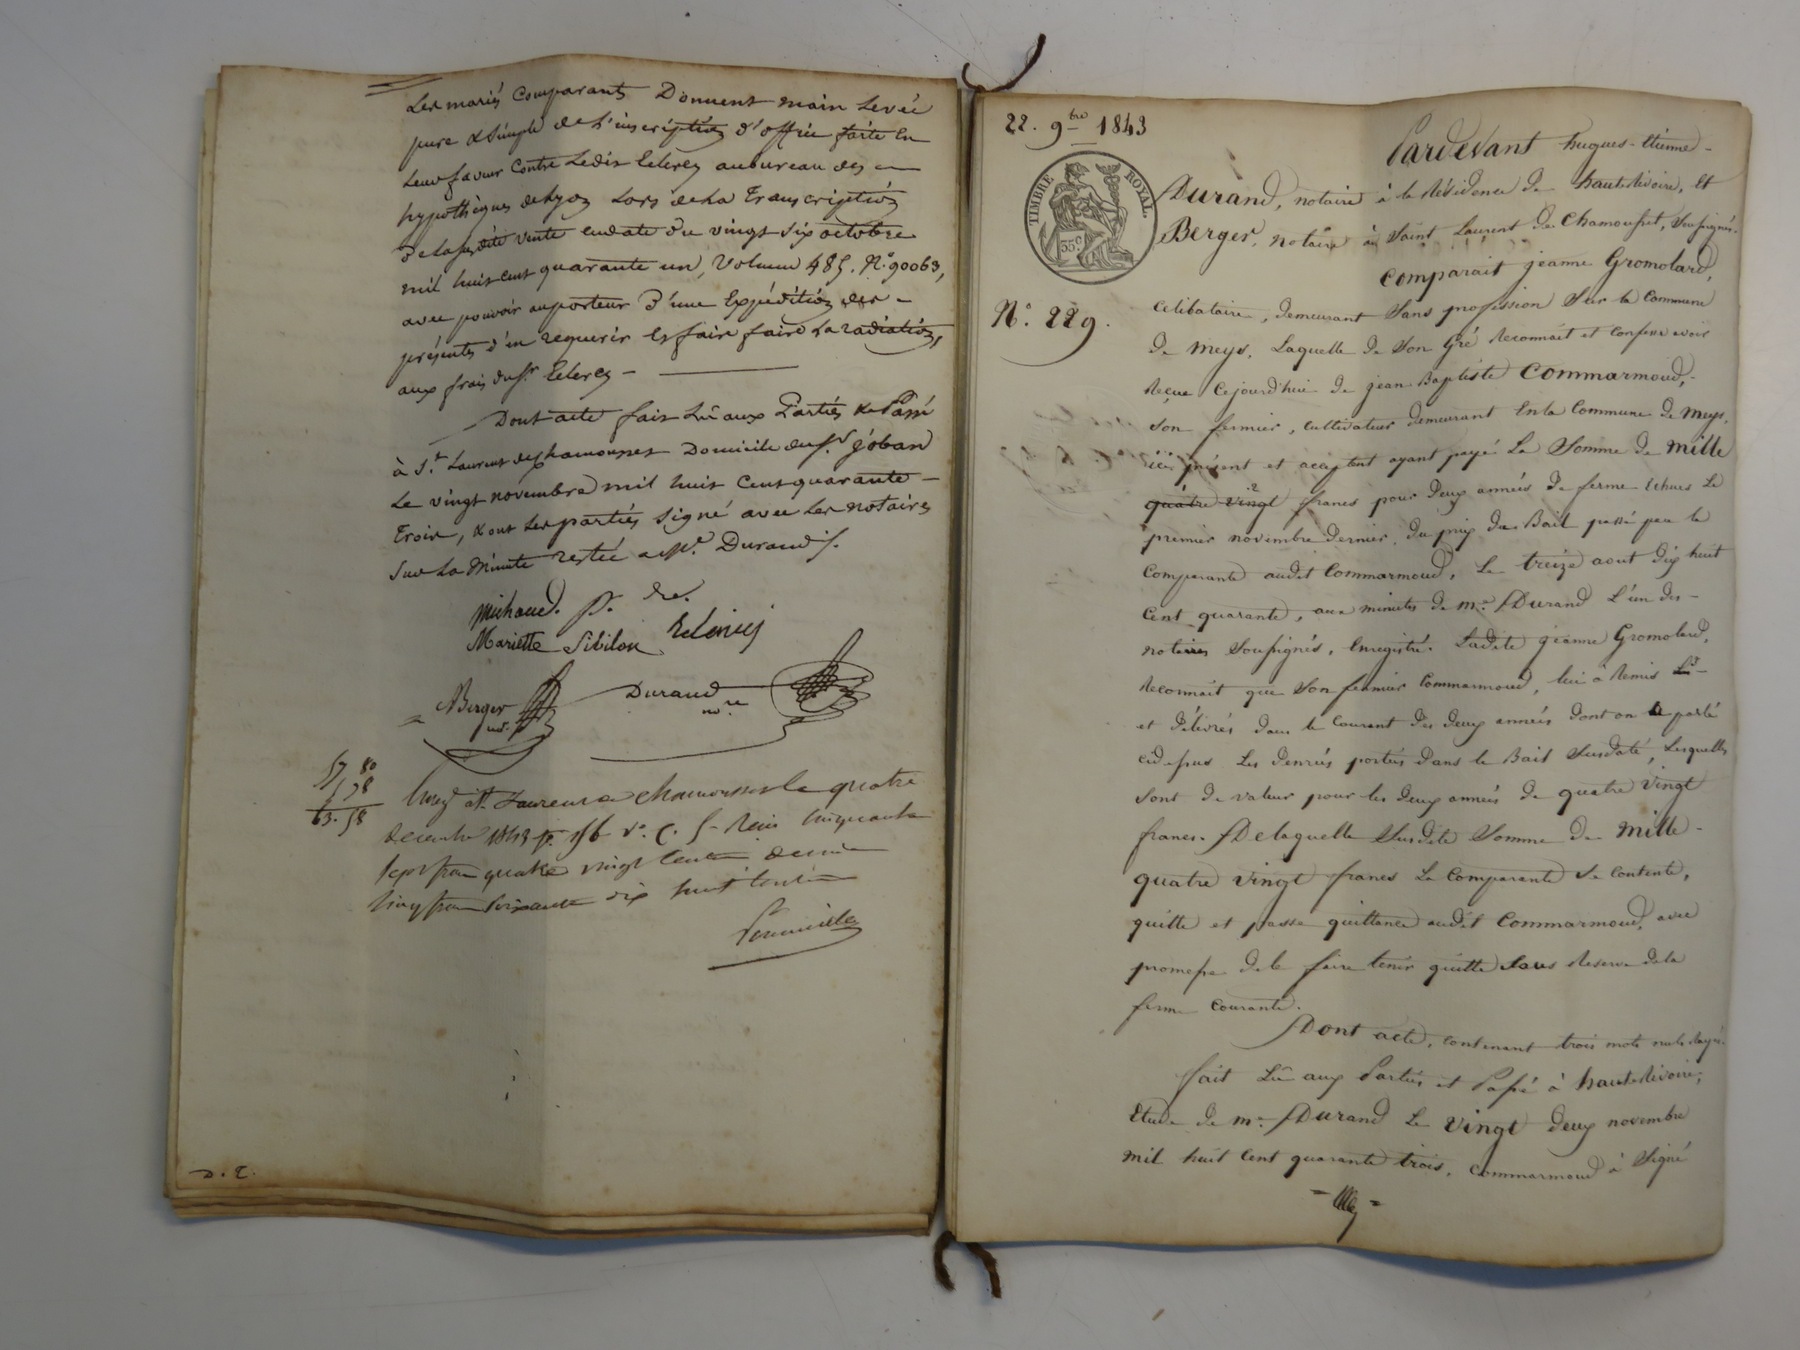 Les mariés Comparants Donnent main Levée
pure & simple de L'inscription d'office faite en
Leur faveur Contre Ledit au bureau des
hypothèques de Lyon Lors de La Transcription
De La susdite vente en date du vingt six octobre
mil huit cent quarante un, Volume 485. N.° 90063,
avec pouvoir au porteur D'une Expédition des
présentes d'en requerir et faire faire La radiation,
aux frais du Sr.
Dont acte fait Lû aux Parties & Passé
à St. Laurent de Chamousset Domicile du Sr. joban
Le vingt novembre mil huit Cent quarante
Trois, & ont Les parties signé avec Les notaires
sur La Minute restée a Me. Durand
Michaud.
Mariette Sibilon
Berger nre. Durand nre
57 80
5 78
63. 58
Enreg. à St. Laurent de Chamousset le quatre
décembre 1843 fo. 156 vo. C. 5 Reçu cinquante
sept francs quatre vingt centimes décime
cinq francs soixante dix huit centimes
D. T.
22. 9bre 1843
Pardevant hugues-Etienne
TIMBRE ROYAL.
35 c.
Durand, notaire à la Résidence de hauterivoire, Et
Berger, notaire à Saint Laurent de Chamousset, soussignés.
Comparait jeanne Gromolard,
N°. 229.
célibataire, demeurant Sans profession Sur la Commune
de Meys. Laquelle de Son Gré Reconnait et Confesse avoir
Reçue Cejourd'hui de jean Baptiste Commarmond,
Son fermier, cultivateur demeurant En la Commune de Meys,
ici présent et acceptant ayant payé La Somme de Mille
quatre vingt francs pour Deux années de ferme Echues Le
premier novembre dernier, du prix du Bail passé par la
Comparante audit Commarmond, Le treize aout dix huit
Cent quarante, aux minutes de me. Durand L'un des
notaires Soussignés, Enregistré. Ladite jeanne Gromolard,
Reconnait que Son fermier Commarmond, lui a Remis
et délivrés dans le Courant des deux années dont on a parlé
cidessus Les denrées portées dans le Bail Susdaté, Lesquelles
Sont de valeur pour les deux années de quatre vingt
francs. De laquelle Susdite Somme de Mille
quatre vingt francs La Comparante Se Contente,
quitte et passe quittance audit Commarmond, avec
promesse de le faire tenir quitte Sans Reserve de la
ferme Courante.
Dont acte, Contenant trois mots nuls Rayés.
fait Lû aux Parties et Passé à hauterivoire;
Etude de me. Durand Le vingt deux novembre
mil huit Cent quarante trois. Commarmond à Signé